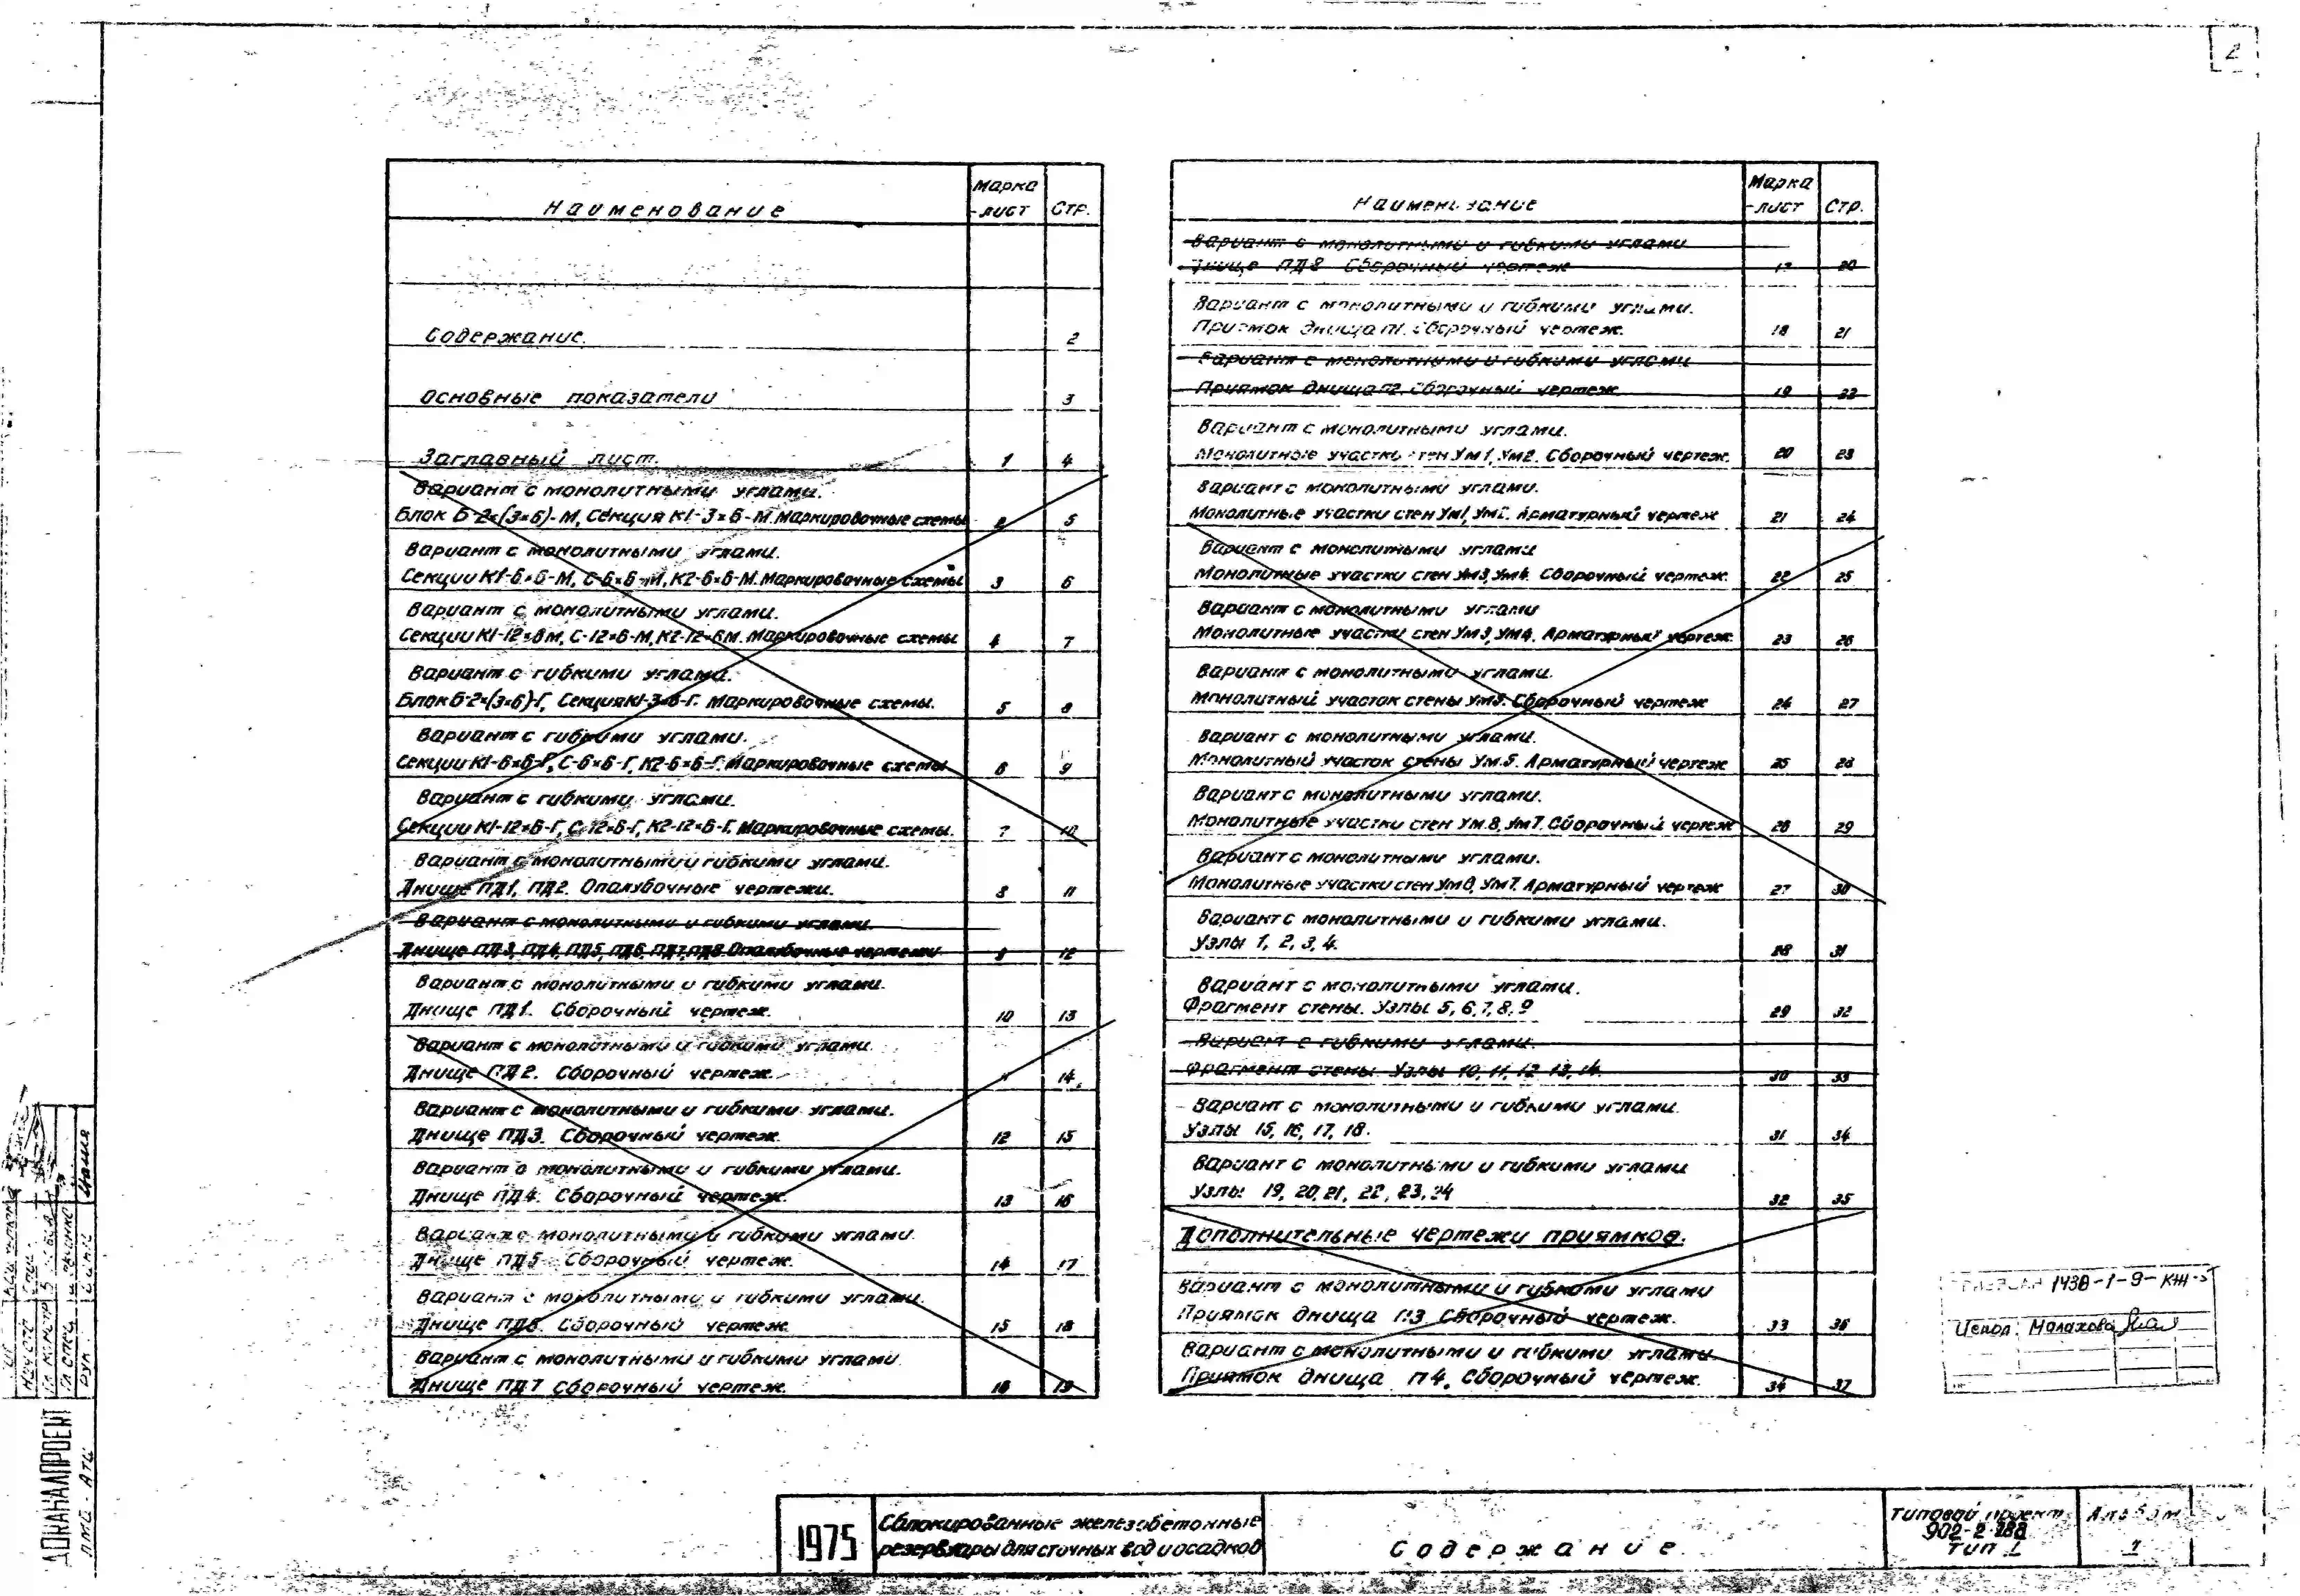 2
Наименование Марка-лист Стр.
Содержание. 2
Основные показатели 3
Заглавный лист. 1 4
Вариант с монолитными углами.
Блок Б-2×(3×6)-М, Секция К1-3×6-М. Маркировочные схемы 2 5
Вариант с монолитными углами.
Секции К1-6×6-М, С-6×6-М, К2-6×6-М. Маркировочные схемы 3 6
Вариант с монолитными углами.
Секции К1-12×6М, С-12×6-М, К2-12×6М. Маркировочные схемы 4 7
Вариант с гибкими углами.
Блок Б-2×(3×6)-Г, Секция К1-3×6-Г. Маркировочные схемы. 5 8
Вариант с гибкими углами.
Секции К1-6×6-Г, С-6×6-Г, К2-6×6-Г. Маркировочные схемы 6 9
Вариант с гибкими углами.
Секции К1-12×6-Г, С-12×6-Г, К2-12×6-Г. Маркировочные схемы. 7 10
Вариант с монолитными и гибкими углами.
Днище ПД1, ПД2. Опалубочные чертежи. 8 11
Вариант с монолитными и гибкими углами.
Днище ПД3, ПД4, ПД5, ПД6, ПД7, ПД8 Опалубочные чертежи 9 12
Вариант с монолитными и гибкими углами.
Днище ПД1. Сборочный чертеж. 10 13
Вариант с монолитными и гибкими углами.
Днище ПД2. Сборочный чертеж. 11 14
Вариант с монолитными и гибкими углами.
Днище ПД3. Сборочный чертеж. 12 15
Вариант с монолитными и гибкими углами.
Днище ПД4. Сборочный чертеж. 13 16
Вариант с монолитными и гибкими углами
Днище ПД5 Сборочный чертеж. 14 17
Вариант с монолитными и гибкими углами.
Днище ПД6. Сборочный чертеж 15 18
Вариант с монолитными и гибкими углами
Днище ПД7 Сборочный чертеж. 16 19
Наименование Марка-лист Стр.
Вариант с монолитными и гибкими углами
Днище ПД8 Сборочный чертеж 17 20
Вариант с монолитными и гибкими углами.
Приямок днища П1. Сборочный чертеж. 18 21
Вариант с монолитными и гибкими углами
Приямок днища П2. Сборочный чертеж 19 22
Вариант с монолитными углами.
Монолитные участки стен Ум1, Ум2. Сборочный чертеж. 20 23
Вариант с монолитными углами.
Монолитные участки стен Ум1, Ум2. Арматурный чертеж 21 24
Вариант с монолитными углами
Монолитные участки стен Ум3, Ум4. Сборочный чертеж 22 25
Вариант с монолитными углами
Монолитные участки стен Ум3, Ум4. Арматурный чертеж 23 26
Вариант с монолитными углами.
Монолитный участок стены Ум5. Сборочный чертеж 24 27
Вариант с монолитными углами.
Монолитный участок стены Ум.5. Арматурный чертеж 25 28
Вариант с монолитными углами.
Монолитные участки стен Ум.6, Ум7. Сборочный чертеж 26 29
Вариант с монолитными углами.
Монолитные участки стен Ум6, Ум7. Арматурный чертеж 27 30
Вариант с монолитными и гибкими углами.
Узлы 1, 2, 3, 4. 28 31
Вариант с монолитными углами.
Фрагмент стены. Узлы 5, 6, 7, 8, 9 29 32
Вариант с гибкими углами.
Фрагмент стены. Узлы 10, 11, 12 13, 14. 30 33
Вариант с монолитными и гибкими углами.
Узлы 15, 16, 17, 18. 31 34
Вариант с монолитными и гибкими углами
Узлы 19, 20, 21, 22, 23, 24 32 35
Дополнительные чертежи приямков.
Вариант с монолитными и гибкими углами
Приямок днища П3 Сборочный чертеж. 33 36
Вариант с монолитными и гибкими углами
Приямок днища П4. Сборочный чертеж. 34 37
1438-1-9-КЖ-5
Испол. Малахова
ДОКАНАЛПРОЕКТ
1975
Сблокированные железобетонные
резервуары для сточных вод и осадков
Содержание.
Типовой проект
902-2-288
тип I
Альбом